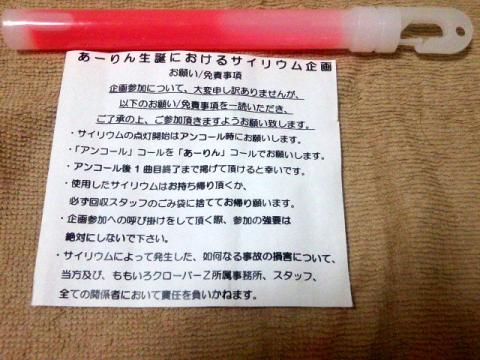 あーりん生誕におけるサイリウム企画
お願い/免責事項
企画参加について、大変申し訳ありませんが、
以下のお願い/免責事項を一読いただき、
ご了承の上、ご参加頂きますようお願い致します。
・サイリウムの点灯開始はアンコール時にお願いします。
・「アンコール」コールを「あーりん」コールでお願いします。
・アンコール後1曲目終了まで掲げて頂けると幸いです。
・使用したサイリウムはお持ち帰り頂くか、
必ず回収スタッフのごみ袋に捨ててお帰り願います。
・企画参加への呼び掛けをして頂く際、参加の強要は
絶対にしないで下さい。
・サイリウムによって発生した、如何なる事故の損害について、
当方及び、ももいろクローバーZ所属事務所、スタッフ、
全ての関係者において責任を負いかねます。